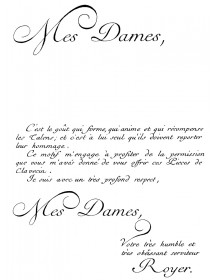 Mes Dames,
C'est le goût qui forme, qui anime et qui récompense
les Talens, et c'est à lui seul qu'ils doivent reporter
leur hommage.
Ce motif m'engage à profiter de la permission
que vous m'avés donné de vous offrir ces Pieces de
Clavecin.
Je suis avec un très profond respect,
Mes Dames,
Votre très humble et
très obéissant serviteur
Royer.